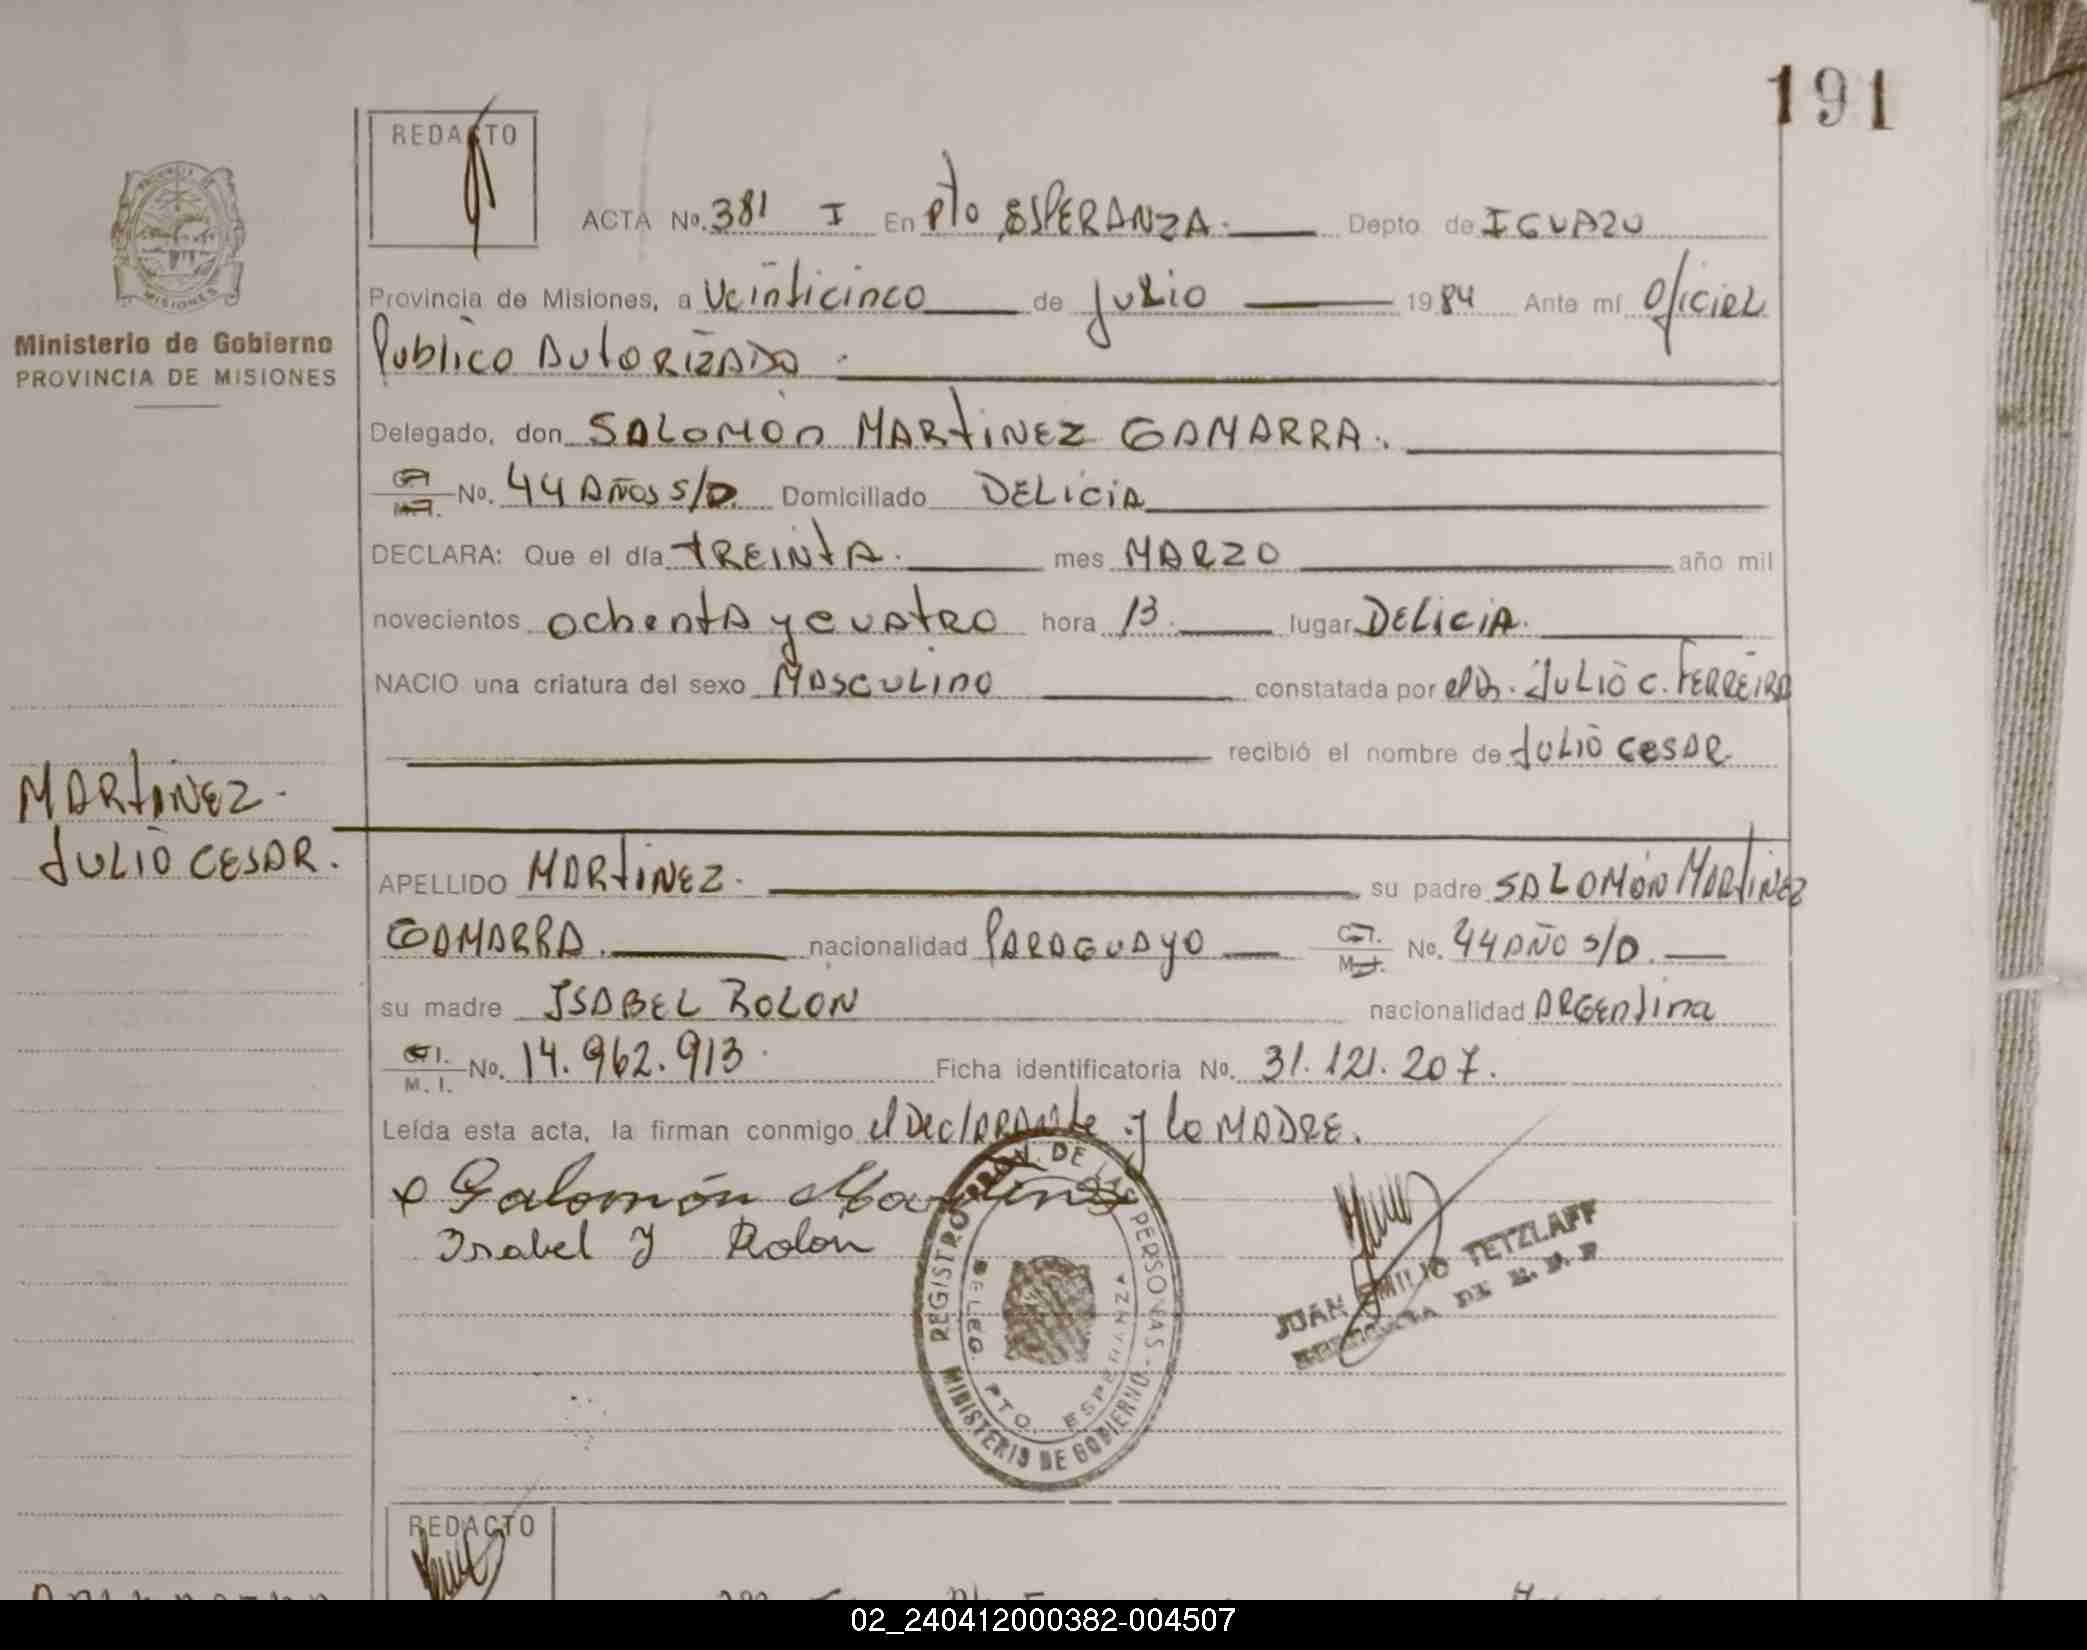 191
REDACTO
ACTA No. 381 I En Pto ESPERANZA. Depto de IGUAZU
Provincia de Misiones, a Veinticinco de Julio 1984 Ante mí Oficiel
Ministerio de Gobierno
PROVINCIA DE MISIONES
Publico AUTORIZADO
Delegado, don SALOMÓN MARTINEZ GAMARRA.
C.I. M.I. No. 44 AÑOS S/D. Domiciliado DELICIA
DECLARA: Que el día TREINTA. mes MARZO año mil
novecientos ochenta y cuatro hora 13. lugar DELICIA.
NACIO una criatura del sexo MASCULINO constatada por el Dr. JULIO C. FERREIRA
recibió el nombre de JULIO CESAR
MARTINEZ.
JULIO CESAR.
APELLIDO MARTINEZ. su padre SALOMÓN MARTINEZ
GAMARRA. nacionalidad PARAGUAYO C.I. M.I. No. 44 AÑO S/D.
su madre ISABEL ROLON nacionalidad ARGENTINA
C.I. M.I. No. 14.962.913 Ficha identificatoria No. 31.121.207.
Leída esta acta, la firman conmigo el Declarante y la MADRE.
x Salomón Martinez
Isabel Y Rolon
REGISTRO PROV. DE LAS PERSONAS - MINISTERIO DE GOBIERNO
DELEG. PTO. ESPERANZA
JUAN EMILIO TETZLAFF
REDACTO
02_240412000382-004507